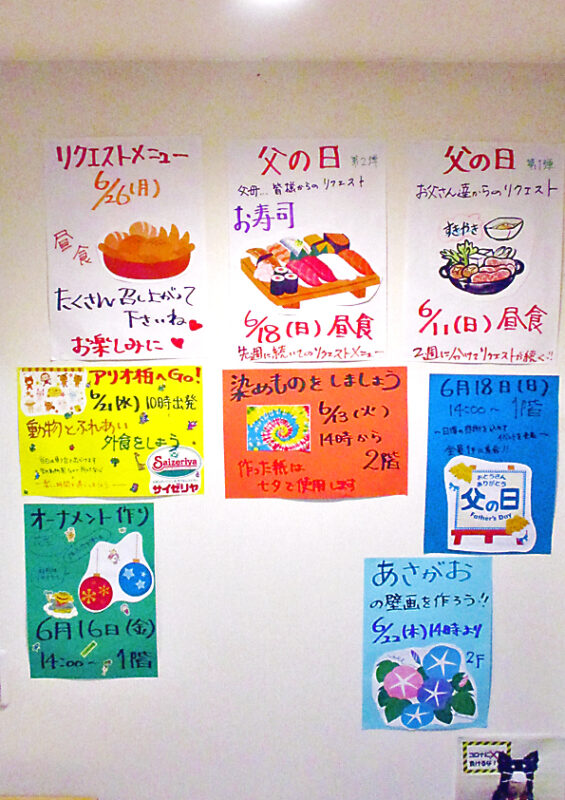 リクエストメニュー
6/26(月)
昼食
たくさん召し上がって
下さいね
お楽しみに
父の日 第2弾
父母... 皆様からのリクエスト
お寿司
6/18(日)昼食
先週に続いてのリクエストメニュー
父の日 第1弾
お父さん達からのリクエスト
すきやき
6/11(日)昼食
2週に分けてリクエストが続く!!
アリオ柏へGo!
6/21(水) 10時出発
動物とふれあい
外食をしよう
Saizeriya
サイゼリヤ
染めものをしましょう
6/13(火)
14時から
2階
作った紙は
七夕で使用します
6月18日(日)
14:00~ 1階
おとうさん
ありがとう
父の日
Father's Day
オーナメント作り
6月16日(金)
14:00~ 1階
あさがお
の壁画を作ろう!!
6/22(木)14時より
2F
コロナに
負けるな!